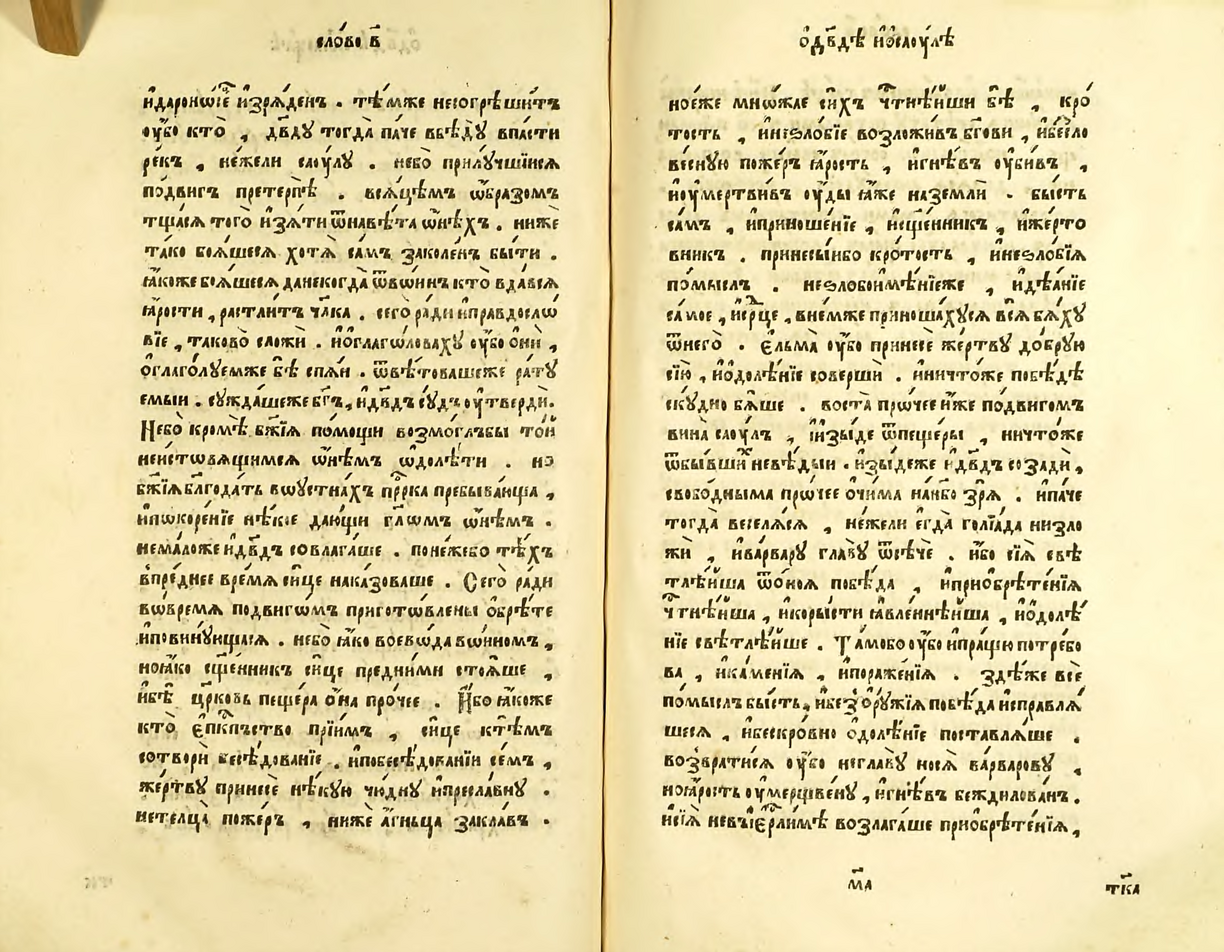 сло́во в҃
и҆даро́нѡⷭ҇е и҆зрѧ́денъ . тѣ́мже несогрѣши́тъ
ᲂу҆́бо кто̀ , дв҃дꙋ тогда̀ па́че вбѣ́дꙋ впа́сти
ре́къ , не́жели саоу́лꙋ . небо̀ прилꙋчши́йсѧ
по́двигъ претерпѣ̀ . всѧ́цѣмъ ѻ҆́бразомъ
тща́сѧ того̀ и҆зѧ́ти ѿнавѣ́та ѡ҆нѣ́хъ . ниже
та́ко боѧ́шесѧ хотѧ̀ са́мъ заколе́нъ бы́ти .
ꙗ҆́коже боѧ́шесѧ данекогда̀ ѿвѡ́инъ кто̀ вда́всѧ
ꙗ҆́рости , растли́тъ чл҃ка . сего̀ ра́ди и҆правдосло́
вїе , таково̀ сложѝ . и҆ѻ҆глаго́ловахꙋ ᲂу҆́бо ѻ҆нѝ ,
ѻ҆глаго́лꙋемже бѣ̀ спѧ́и . ѿвѣтова́шеже ра́тꙋ
емыи . сꙋжда́шеже бг҃ъ , и҆дв҃дъ сꙋ́дъ ᲂу҆твердѝ .
Небо кромѣ̀ бж҃їѧ по́мощи возмо́глъбы то́й
неи́стовѧщимсѧ ѡ҆нѣ́мъ ѡ҆долѣ́ти . но
бж҃їѧ благода́ть вᲂу҆стна́хъ прⷪ҇ка пребыва́ющи ,
и҆пѡкоре́нїе нѣ́кое даю́щи гл҃ѡмъ ѡ҆нѣ́мъ .
нема́ложе и҆дв҃дъ совлага́ше . поне́жебо тѣ́хъ
впре́днее вре́мѧ си́це наказова́ше . Сего̀ ра́ди
вѡвре́мѧ по́двигѡмъ пригото́влены ѻ҆брѣ́те
и҆повинꙋ́ющасѧ . небо ꙗ҆́ко воево́да вѡ́иномъ ,
ноꙗ҆́ко сщ҃е́нникъ си́це пре́дними стоѧ́ше ,
и҆бѣ̀ цр҃ковь пеще́ра ѻ҆́на про́чее . И҆́бо ꙗ҆́коже
кто̀ є҆пⷭ҇кпъство прїи́мъ , си́це ктѣ́мъ
сотворѝ бесѣ́дованїе . и҆побесѣ́дованїи се́мъ ,
же́ртвꙋ принесѐ нѣ́кꙋю чю́днꙋ и҆пресла́внꙋ .
нетелца̀ поже́ръ , ниже а҆́гньца закла́въ .
ѻ҆дв҃дѣ и҆ѻ҆саоу́лѣ
ноѐже мно́жае си́хъ чⷭ҇тнѣ́йши бѣ̀ , кро́
тость , и҆неѕло́бїе возложи́въ бг҃ови , и҆бесло
ве́сную поже́ръ ꙗ҆́рость , и҆гнѣ́въ ᲂу҆би́въ ,
и҆ᲂу҆мертви́въ ᲂу҆́ды ꙗ҆́же наземлѝ . бы́сть
са́мъ , и҆приноше́нїе , и҆сщ҃е́нникъ , и҆же́рто
вникъ . принесы́ибо кро́тость , и҆неѕло́бїѧ
по́мыслъ . неѕлобоимѣ́нїеже , и҆дѣѧ́нїе
са́мое , и҆ср҃це , вне́мже приноша́хꙋсѧ всѧ̀ бѧ́хꙋ
ѿнего̀ . Є҆льма̀ ᲂу҆́бо принесѐ же́ртвꙋ до́брꙋю
сїю̀ , и҆ѻ҆долѣ́нїе совершѝ . и҆ничто́же побѣ́дѣ
скꙋ́дно бѧ́ше . воста̀ про́чее и҆́же по́двигомъ
вина̀ саоу́лъ , и҆и҆зы́де ѿпеще́ры , ничто́же
ѿбы́вшиⷯ невѣ́дыи . и҆зы́деже и҆дв҃дъ соза́ди ,
свобо́дныма про́чее ѻ҆чи́ма нане́бо зрѧ̀ . и҆па́че
тогда̀ веселѧ́сѧ , не́жели є҆гда̀ голїа́да низло
жѝ , и҆ва́рварꙋ главꙋ̀ ѿсѣ́че . и҆́бо сїѧ̀ свѣ
тлѣ́йша ѿѻ҆́ноѧ побѣ́да , и҆приѻ҆брѣте́нїѧ
чⷭ҇тнѣ́йша , и҆коры́сти ꙗ҆вле́ннѣйша , и҆ѻ҆долѣ́
нїе свѣтлѣ́йше . Та́мобо ᲂу҆́бо и҆пра́щю потре́бо
ва , и҆ка́менїѧ , и҆пораже́нїѧ . здѣ́же всѐ
по́мыслъ бы́сть , и҆безѻ҆рꙋ́жїѧ побѣ́да и҆справлѧ́
шесѧ , и҆беско́рвно ѻ҆долѣ́нїе поставлѧ́ше .
возврати́сѧ ᲂу҆́бо неглавꙋ̀ носѧ̀ ва́рваровꙋ ,
ноꙗ҆́рость ᲂу҆мерщве́нꙋ , и҆гнѣ́въ безжи́лованъ .
и҆сїѧ̀ невъі҆єрⷭ҇ли́мѣ возлага́ше приѻ҆брѣте́нїѧ ,
м҃а
тк҃а